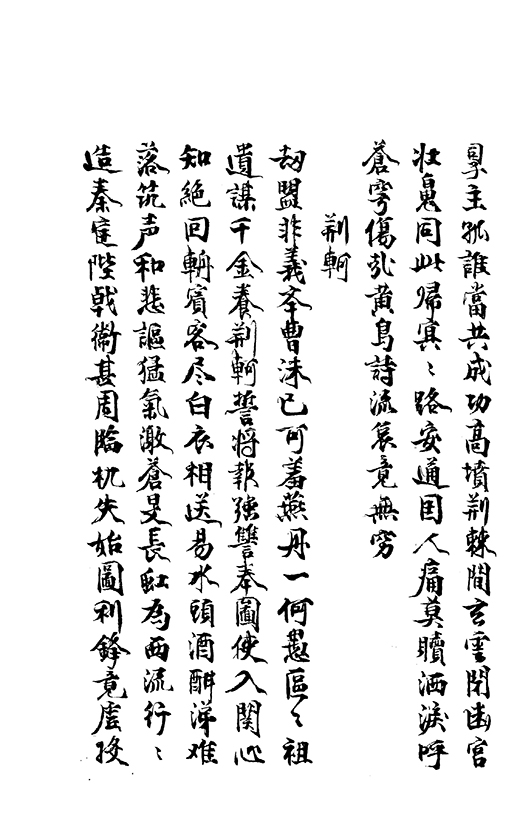 主孤誰當共成功高墳荆棘間玄雲閉幽宮
壮鬼同此歸冥〻路安通囯人痛莫贖洒淚呼
蒼穹傷哉黄鳥詩流哀竟無窮
荆軻
刼盟非義本曹沫已可羞燕丹一何愚區〻祖
遺謀千金養荆軻誓將報强讐奉圖使入関心
知絶回輈賔客尽白衣相送易水頭酒酣涕难
落筑声和悲謳猛氣激蒼旻長虹為西流行〻
造秦庭陛戟衞甚周臨机失始圖利鋒竟虚投